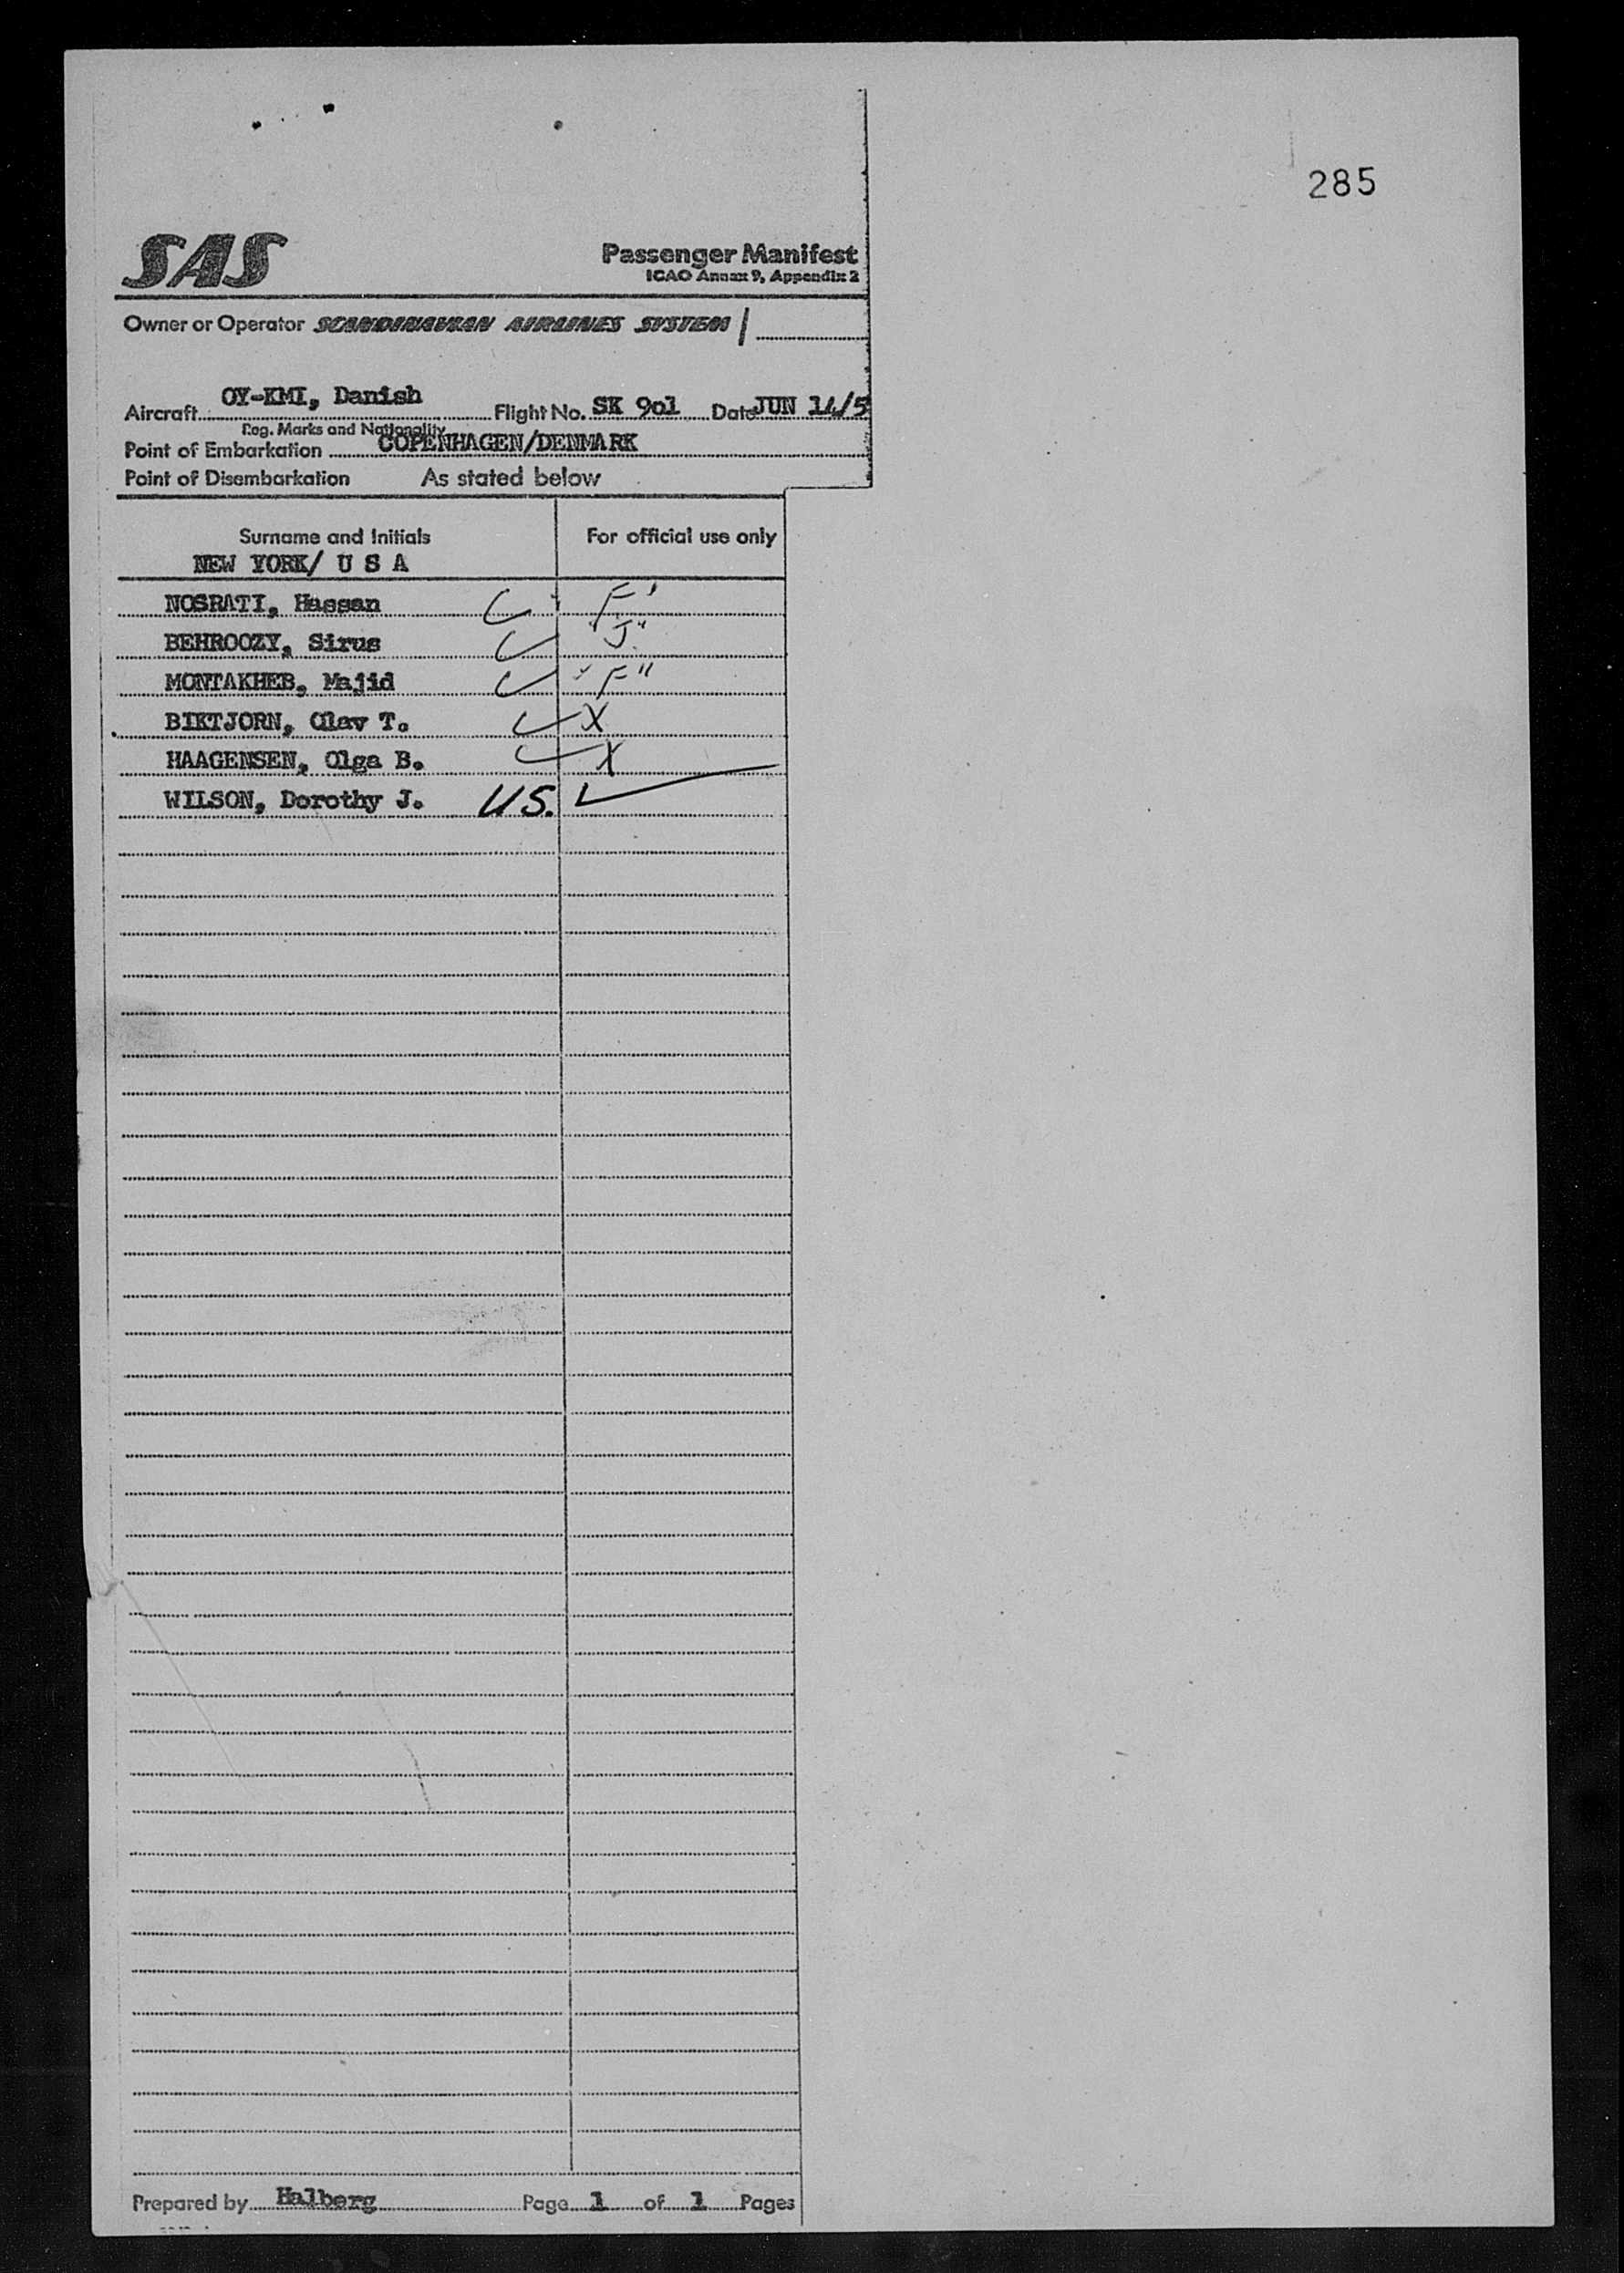 285
SAS
Passenger Manifest
ICAO Annex 9, Appendix 2
Owner or Operator SCANDINAVIAN AIRLINES SYSTEM
Aircraft OY-KMI, Danish Flight No. SK 901 Date JUN 14/5
Reg. Marks and Nationality
Point of Embarkation COPENHAGEN/DENMARK
Point of Disembarkation As stated below
Surname and Initials For official use only
NEW YORK/ U S A
NOSRATI, Hassan F'
BEHROOZY, Sirus "J"
MONTAKHEB, Majid "F"
BIKTJORN, Olav T. X
HAAGENSEN, Olga B. X
WILSON, Dorothy J. US.
Prepared by Halberg Page 1 of 1 Pages